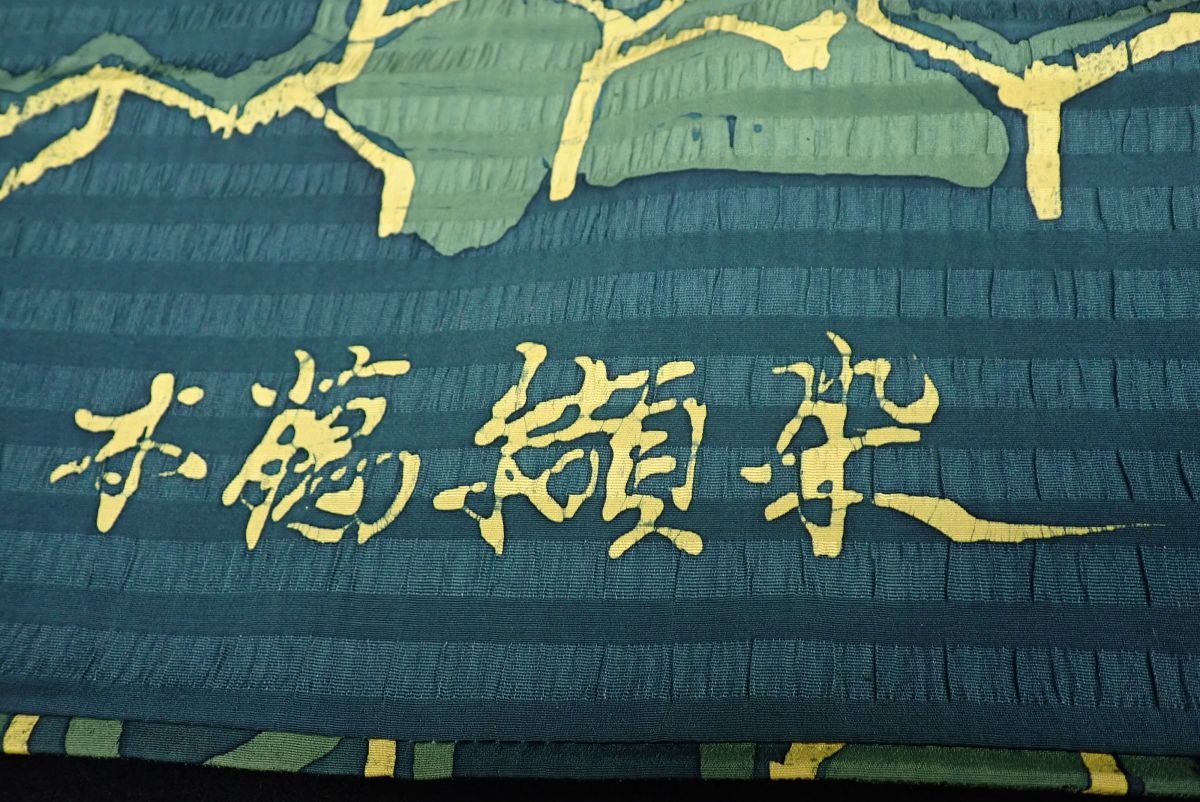 本臈纈染